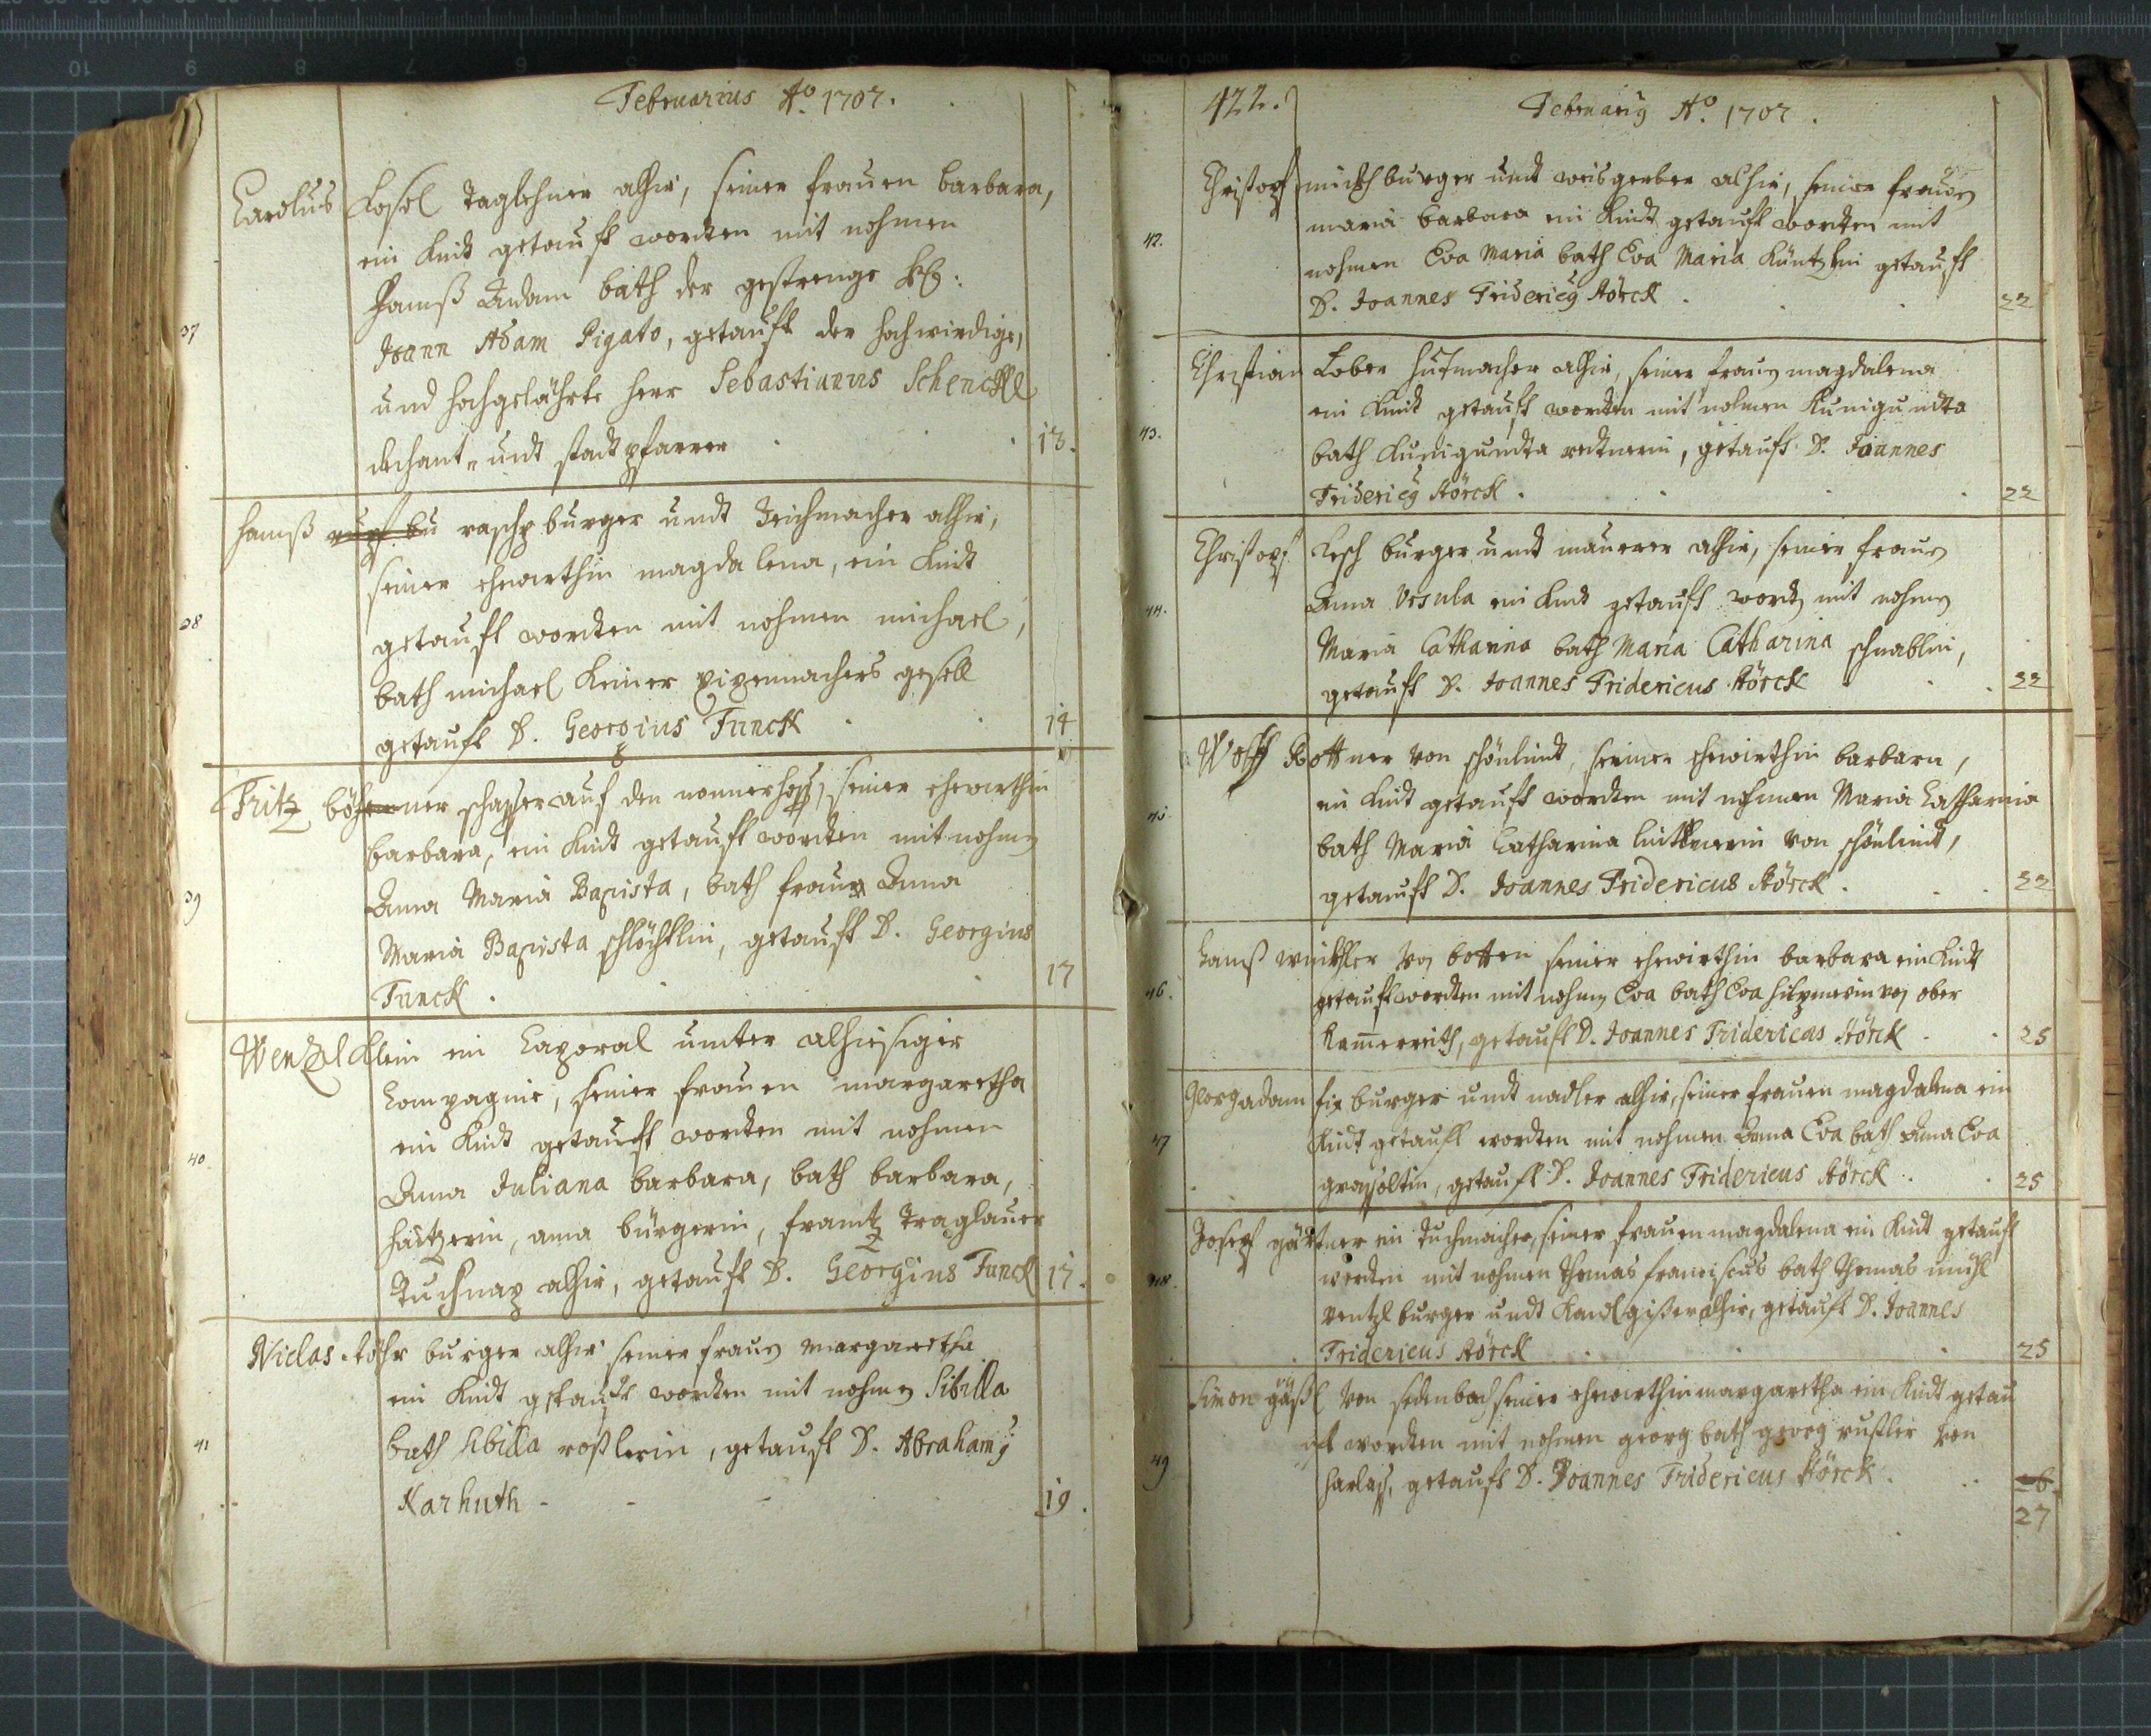 Februarius Aº. 1707.
Carolus Losol Taglehner alhir, seiner frauen barbara,
ein Kindt getauft worden mit nohmen
Hanß Adam bath der gestrenge H:
37
Joann Adam Pigato, getauft der hochwirdige,
und hochgelährte herr Sebastianus Schenckl
dechant- undt stadtpfarrer . . 13.
Hanß raschp burger undt Zeichmacher alhir,
seiner ehewirthin magdalena, ein Kindt
38
getauft worden mit nohmen michael,
bath michael Keiner pixenmachers gesell
getauft D. Georgius Funck . . 14
Fritz auf den nonnerhoff, seiner ehewirthin
barbara, ein Kindt getauft worden mit nohmen
39
Anna Maria Baptista, bath frau Anna
Maria Baptista getauft D. Georgius
Funck . . . 17
Wenzel Klein ein Caporal unter alhiesiger
Compagnie, seiner frauen margaretha
ein Kindt getauft worden mit nohmen
40
Anna Juliana barbara, bath barbara,
anna bürgerin, frantz Traglauer
Tuchnap alhir, getauft D. Georgius Funck 17.
Niclas Köhr burger alhir seiner frauen margaretha
ein Kindt getauft worden mit nohmen Sibilla
41
bath Sibilla roßlerin, getauft D. Abrahamus
Karhuth - - - 19.
422.
Februarius Aº. 1707.
Christoph burger undt weisgerber alhir, seiner frauen
maria barbara ein Kindt getauft worden mit
42.
nohmen Eva Maria bath Eva Maria Küntzlin getauft
D. Joannes Fridericus Störck . . . 22
Christian Lober Hutmacher alhir, seiner frauen magdalena
ein Kindt getauft worden mit nohmen Kunigundta
43.
bath Kunigundta getauft D. Joannes
Fridericus Störck . . . 22
Christoph Lesch burger undt maurer alhir, seiner frauen
44.
Anna Ursula ein Kindt getauft worden mit nohmen
Maria Catharina bath Maria Catharina schnablin,
getauft D. Joannes Fridericus Störck . . 22
Wolff Rottner von schönlindt, seiner ehewirthin barbara,
45
ein Kindt getauft worden mit nohmen Maria Catharina
bath Maria Catharina von schönlindt,
getauft D. Joannes Fridericus Störck . . . 22
Hanß winkhler von botten seiner ehewirthin barbara ein Kindt
46.
getauft worden mit nohmen Eva bath Eva von ober
Kammerreith, getauft D. Joannes Fridericus Störck . . 25
Georg adam fix burger undt nadler alhir, seiner frauen magdalena ein
47
Kindt getauft worden mit nohmen Anna Eva bath Anna Eva
getauft D. Joannes Fridericus Störck . . 25
Joseph gärtner ein Tuchmacher, seiner frauen magdalena ein Kindt getauft
48.
worden mit nohmen Thomas franciscus bath Thomas
burger undt alhir, getauft D. Joannes
Fridericus Störck . . . 25
Simon von sedenbach seiner ehewirthin margaretha ein Kindt getau
ft worden mit nohmen georg bath georg rußler von
49
getauft D. Joannes Fridericus Störck . . 26
27